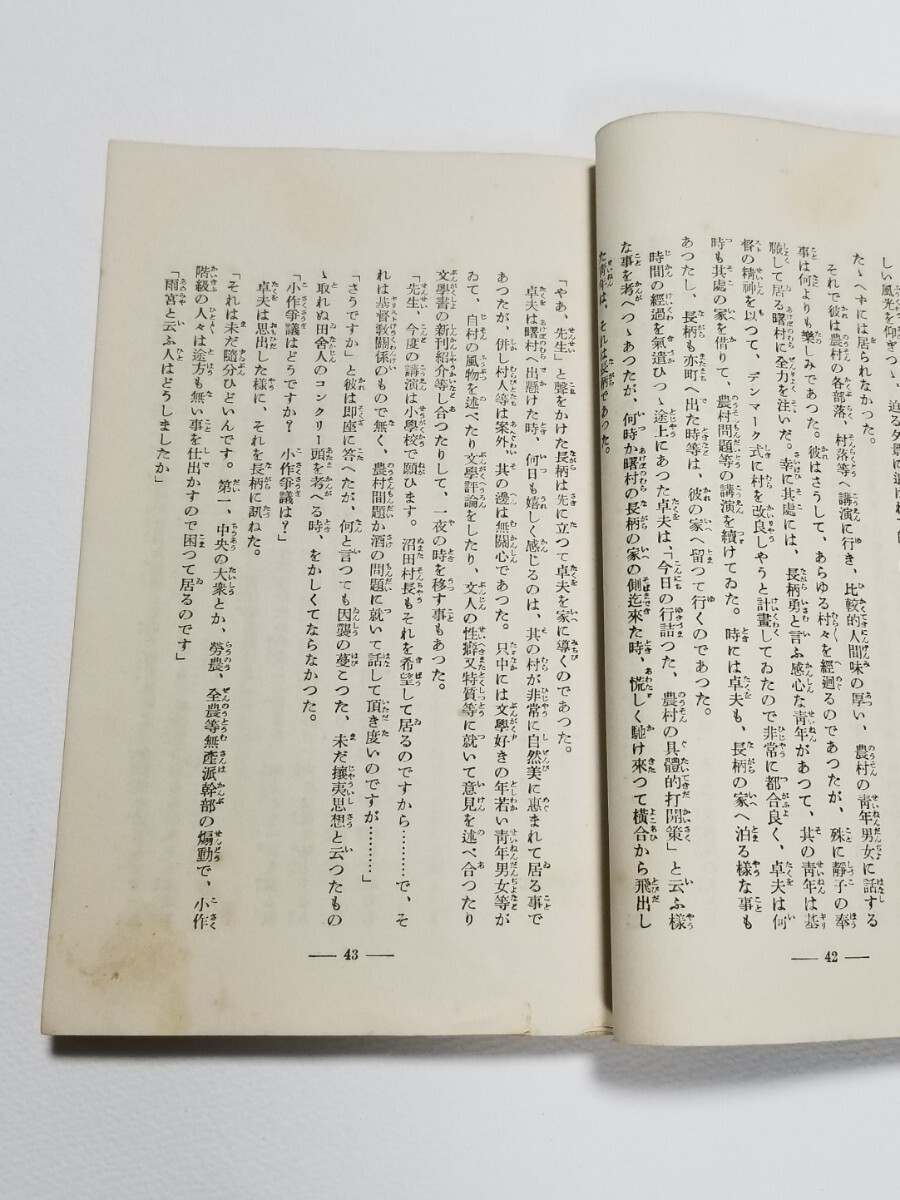 しい風光を仰ぎつゝ、迫る夕景に
たゝへずには居られなかつた。
それで彼は農村の各部落、村落等へ講演に行き、比較的人間味の厚い、農村の青年男女に話する
事は何よりも樂しみであつた。彼はさうして、あらゆる村々を經廻るのであつたが、殊に靜子の奉
職して居る曙村に全力を注いだ。幸に其處には、長柄勇と言ふ感心な青年があつて、其の青年は基
督の精神を以つて、デンマーク式に村を改良しやうと計畫してゐたので非常に都合良く、卓夫は何
時も其處の家を借りて、農村問題等の講演を續けてゐた。時には卓夫も、長柄の家へ泊る樣な事も
あつたし、長柄も亦町へ出た時等は、彼の家へ留つて行くのであつた。
時間の經過を氣遣ひつゝ途上にあつた卓夫は「今日の行詰つた、農村の具體的打開策」と云ふ樣
な事を考へつゝあつたが、何時か曙村の長柄の家の側迄來た時、慌しく馳け來つて横合から飛出し
た青年は、それは長柄であつた。
― 42 ―
「やあ、先生」と聲をかけた長柄は先に立つて卓夫を家に導くのであつた。
卓夫は曙村へ出懸けた時、何日も嬉しく感じるのは、其の村が非常に自然美に惠まれて居る事で
あつたが、併し村人等は案外、其の邊は無關心であつた。只中には文學好きの年若い青年男女等が
ゐて、自村の風物を述べたり文學評論をしたり、文人の性癖又特質等に就いて意見を述べ合つたり
文學書の新刊紹介等し合つたりして、一夜の時を移す事もあつた。
「先生、今度の講演は小學校で願ひます。沼田村長もそれを希望して居るのですから………で、そ
れは基督敎關係のもので無く、農村問題か酒の問題に就いて話して頂き度いのですが…………」
「さうですか」と彼は即座に答へたが、何と言つても因襲の蔓こつた、未だ攘夷思想と云つたもの
ゝ取れぬ田舍人のコンクリー頭を考へる時、をかしくてならなかつた。
「小作爭議はどうですか?　小作爭議は?」
卓夫は思出した樣に、それを長柄に訊ねた。
「それは未だ隨分ひどいんです。第一、中央の大衆とか、勞農、全農等無產派幹部の煽動で、小作
階級の人々は途方も無い事を仕出かすので困つて居るのです」
「雨宮と云ふ人はどうしましたか」
― 43 ―